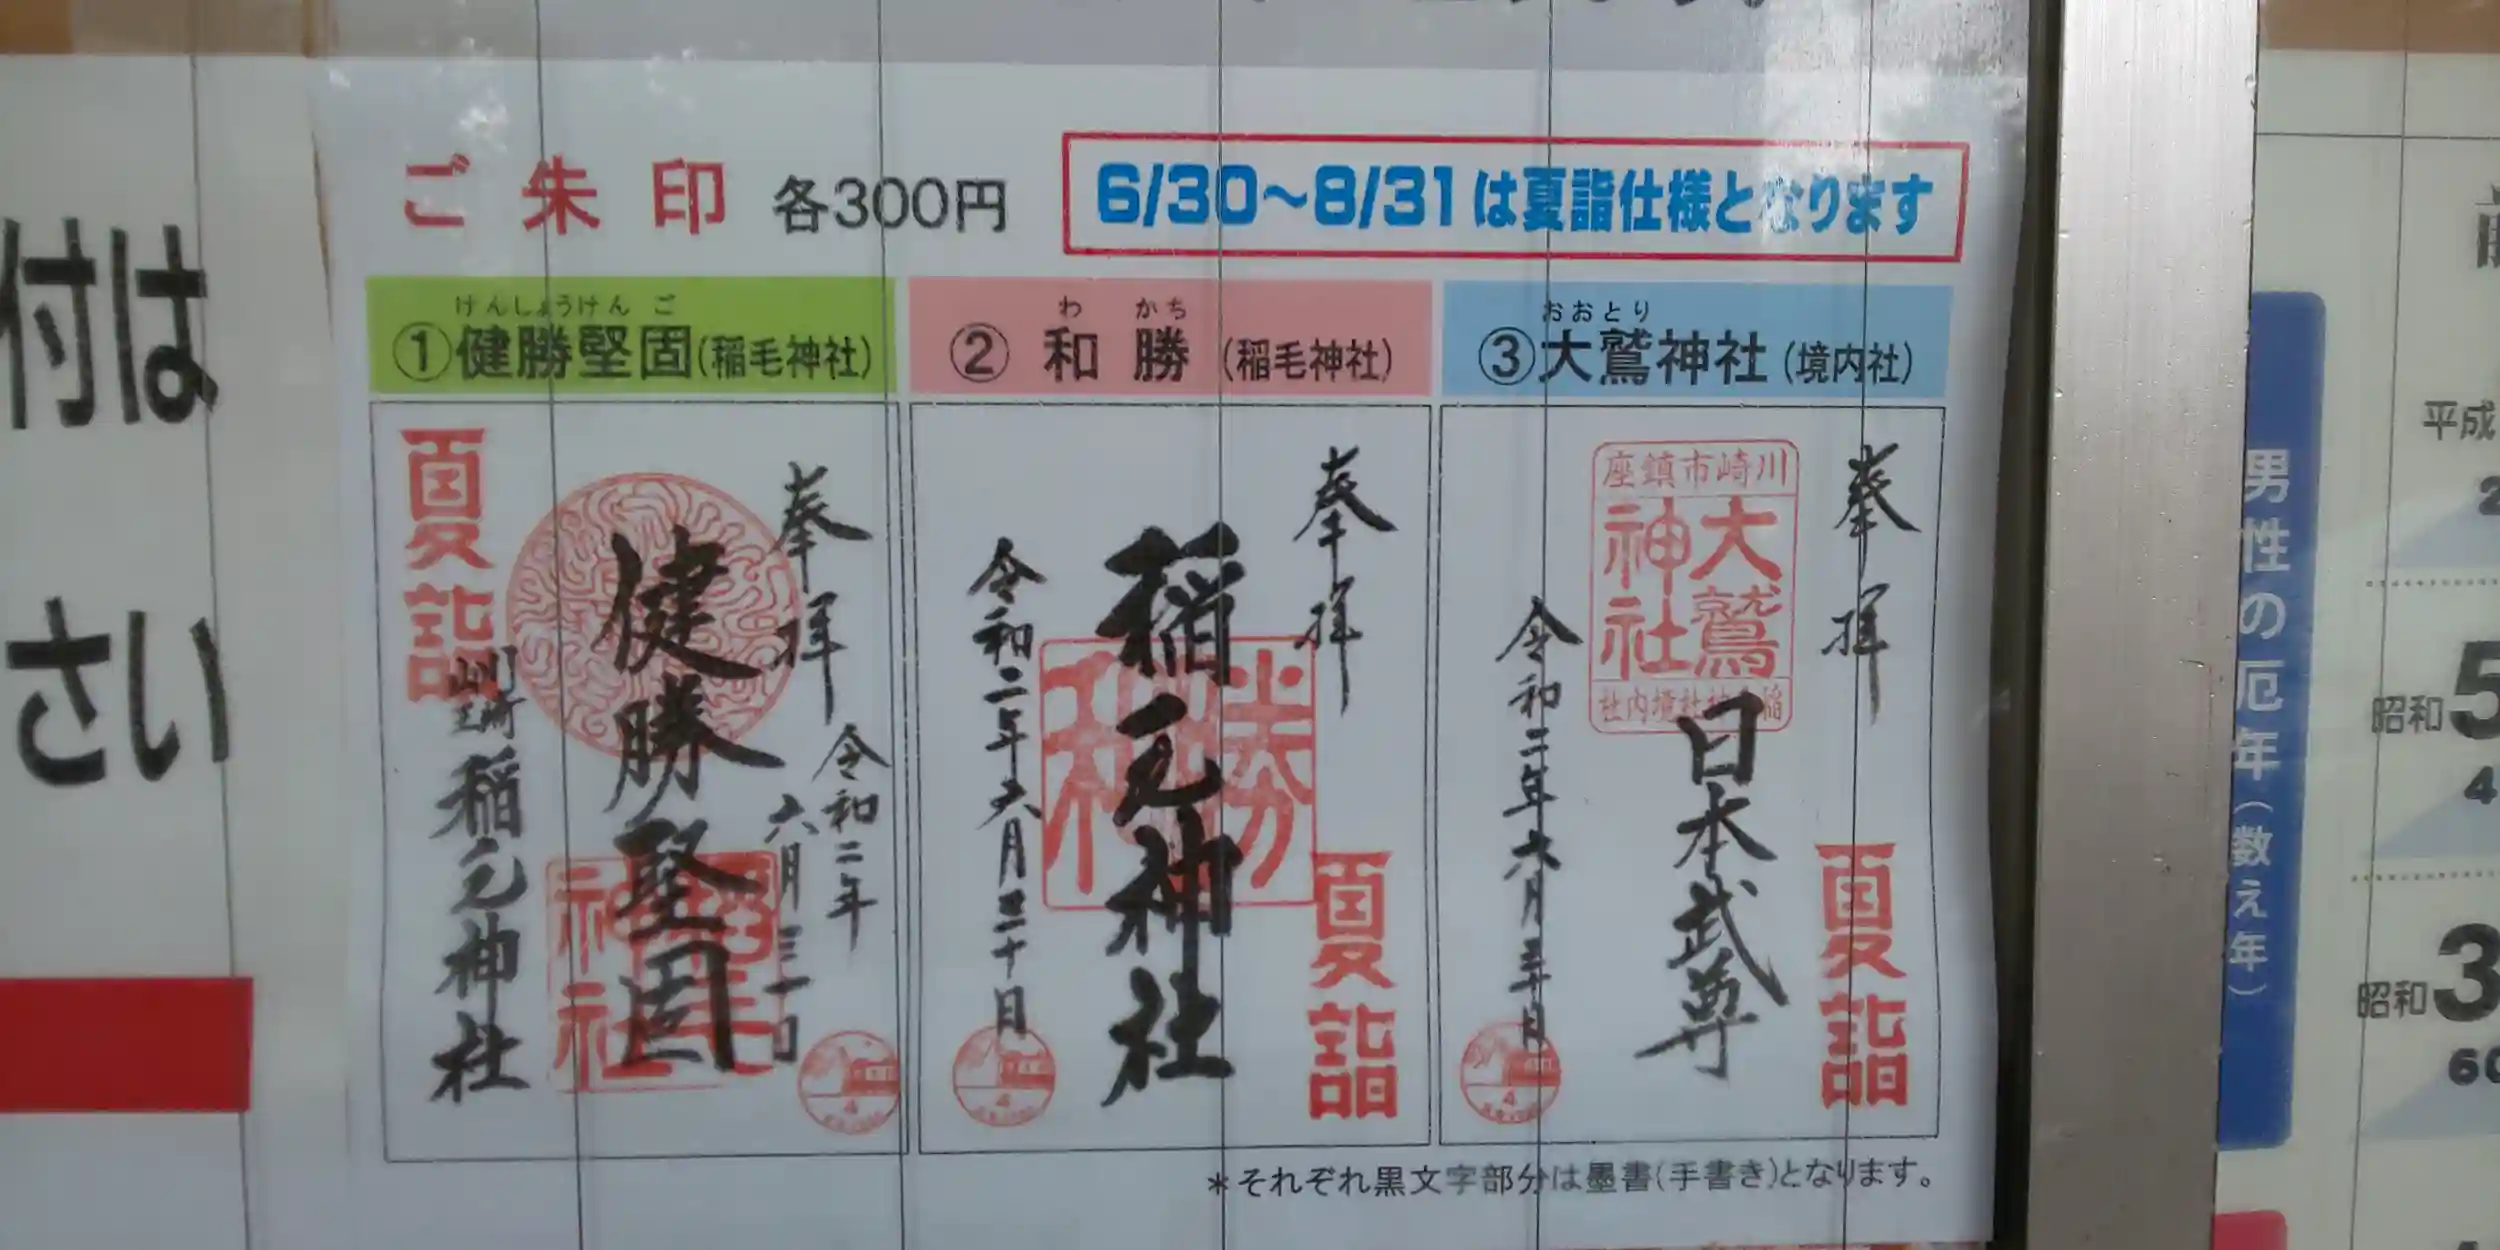 付は
さい
ご朱印 各300円
6/30～8/31は夏詣仕様となります
けんしょうけんご
①健勝堅固(稲毛神社)
わ かち
② 和勝 (稲毛神社)
おおとり
③大鷲神社(境内社)
奉拝
令和二年
六月三十日
健勝堅固
夏詣
稲毛神社
奉拝
夏詣
稲毛神社
和勝
令和二年六月三十日
奉拝
夏詣
川崎市鎮座
大鷲
神社
日本武尊
令和二年六月三十日
4
4
4
＊それぞれ黒文字部分は墨書(手書き)となります。
男性の厄年(数え年)
平成
昭和5
4
昭和3
60